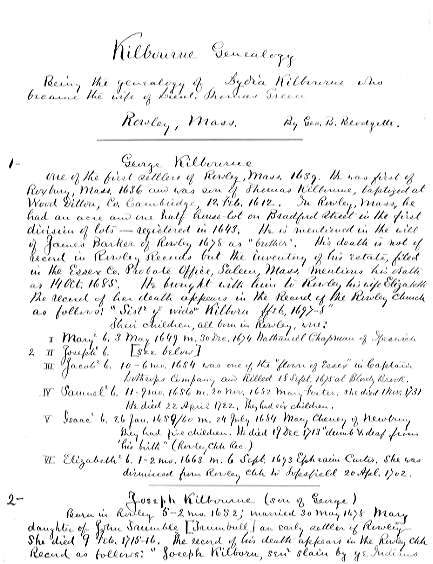 Kilbourne Genealogy
Being the genealogy of Lydia Kilbourne who
became the wife of Lieut. Thomas Green
Rowley, Mass. By Geo. B. Blodgette.
1- George Kilbourne
One of the first settlers of Rowley, Mass. 1639. He was first of
Roxbury, Mass. 1636 and was son of Thomas Kilborne, baptized at
Wood Ditton, Co. Cambridge, 12 Feb. 1612. In Rowley, Mass, he
had an acre and one half house lot on Bradford Street in the first
division of lots — registered in 1643. He is mentioned in the will
of James Barker of Rowley 1678 as "brother". His death is not of
record in Rowley Records but the inventory of his estate, filed
in the Essex Co. Probate Office, Salem, Mass. mentions his death
as 14 Oct. 1685. He brought with him to Rowley his wife Elizabeth
The record of her death appears in the Record of the Rowley Church
as follows: "Sist'r vido" Kilborn 1697-8"
Their children, all born in Rowley, were:
I Mary b. 3 May 1649 m. 30 Dec. 1674 Nathaniel Chapman of Ipswich
2 II Joseph b. [see below]
III Jacob b. 10-6mo. 1654 was one of the "flower of Essex" in Captain
Lothrops Company and killed 18 Sept. 1675 at Bloody Brook.
IV Samuel b. 11-9mo. 1656 m. 20 Nov. 1682 Mary Foster. she died 1 Nov. 1731
He died 22 April 1722. They had six children.
V Isaac b. 26 Jan. 1659/60 m. 24 July 1684 Mary Cheney of Newbury
They had five children. He died 19 Dec 1713 "dumb & deaf from
his birth" (Rowley Chh Rec.)
VI Elizabeth b. 1-2mo. 1663 m. 6 Sept. 1693 Ephraim Curtis. She was
dismissed from Rowley Chh to Topsfield 20 Apl. 1702.
2- Joseph Kilbourne (son of George)
Born in Rowley 5-2mo. 1652; married 30 May 1678 Mary
daughter of John Trumble [Trumbull] an early settler of Rowley
She died 9 Feb. 1715-16. The record of his death appears in the Rowley Chh
Record as follows: "Joseph Kilborn, sen' slain by ye Indians